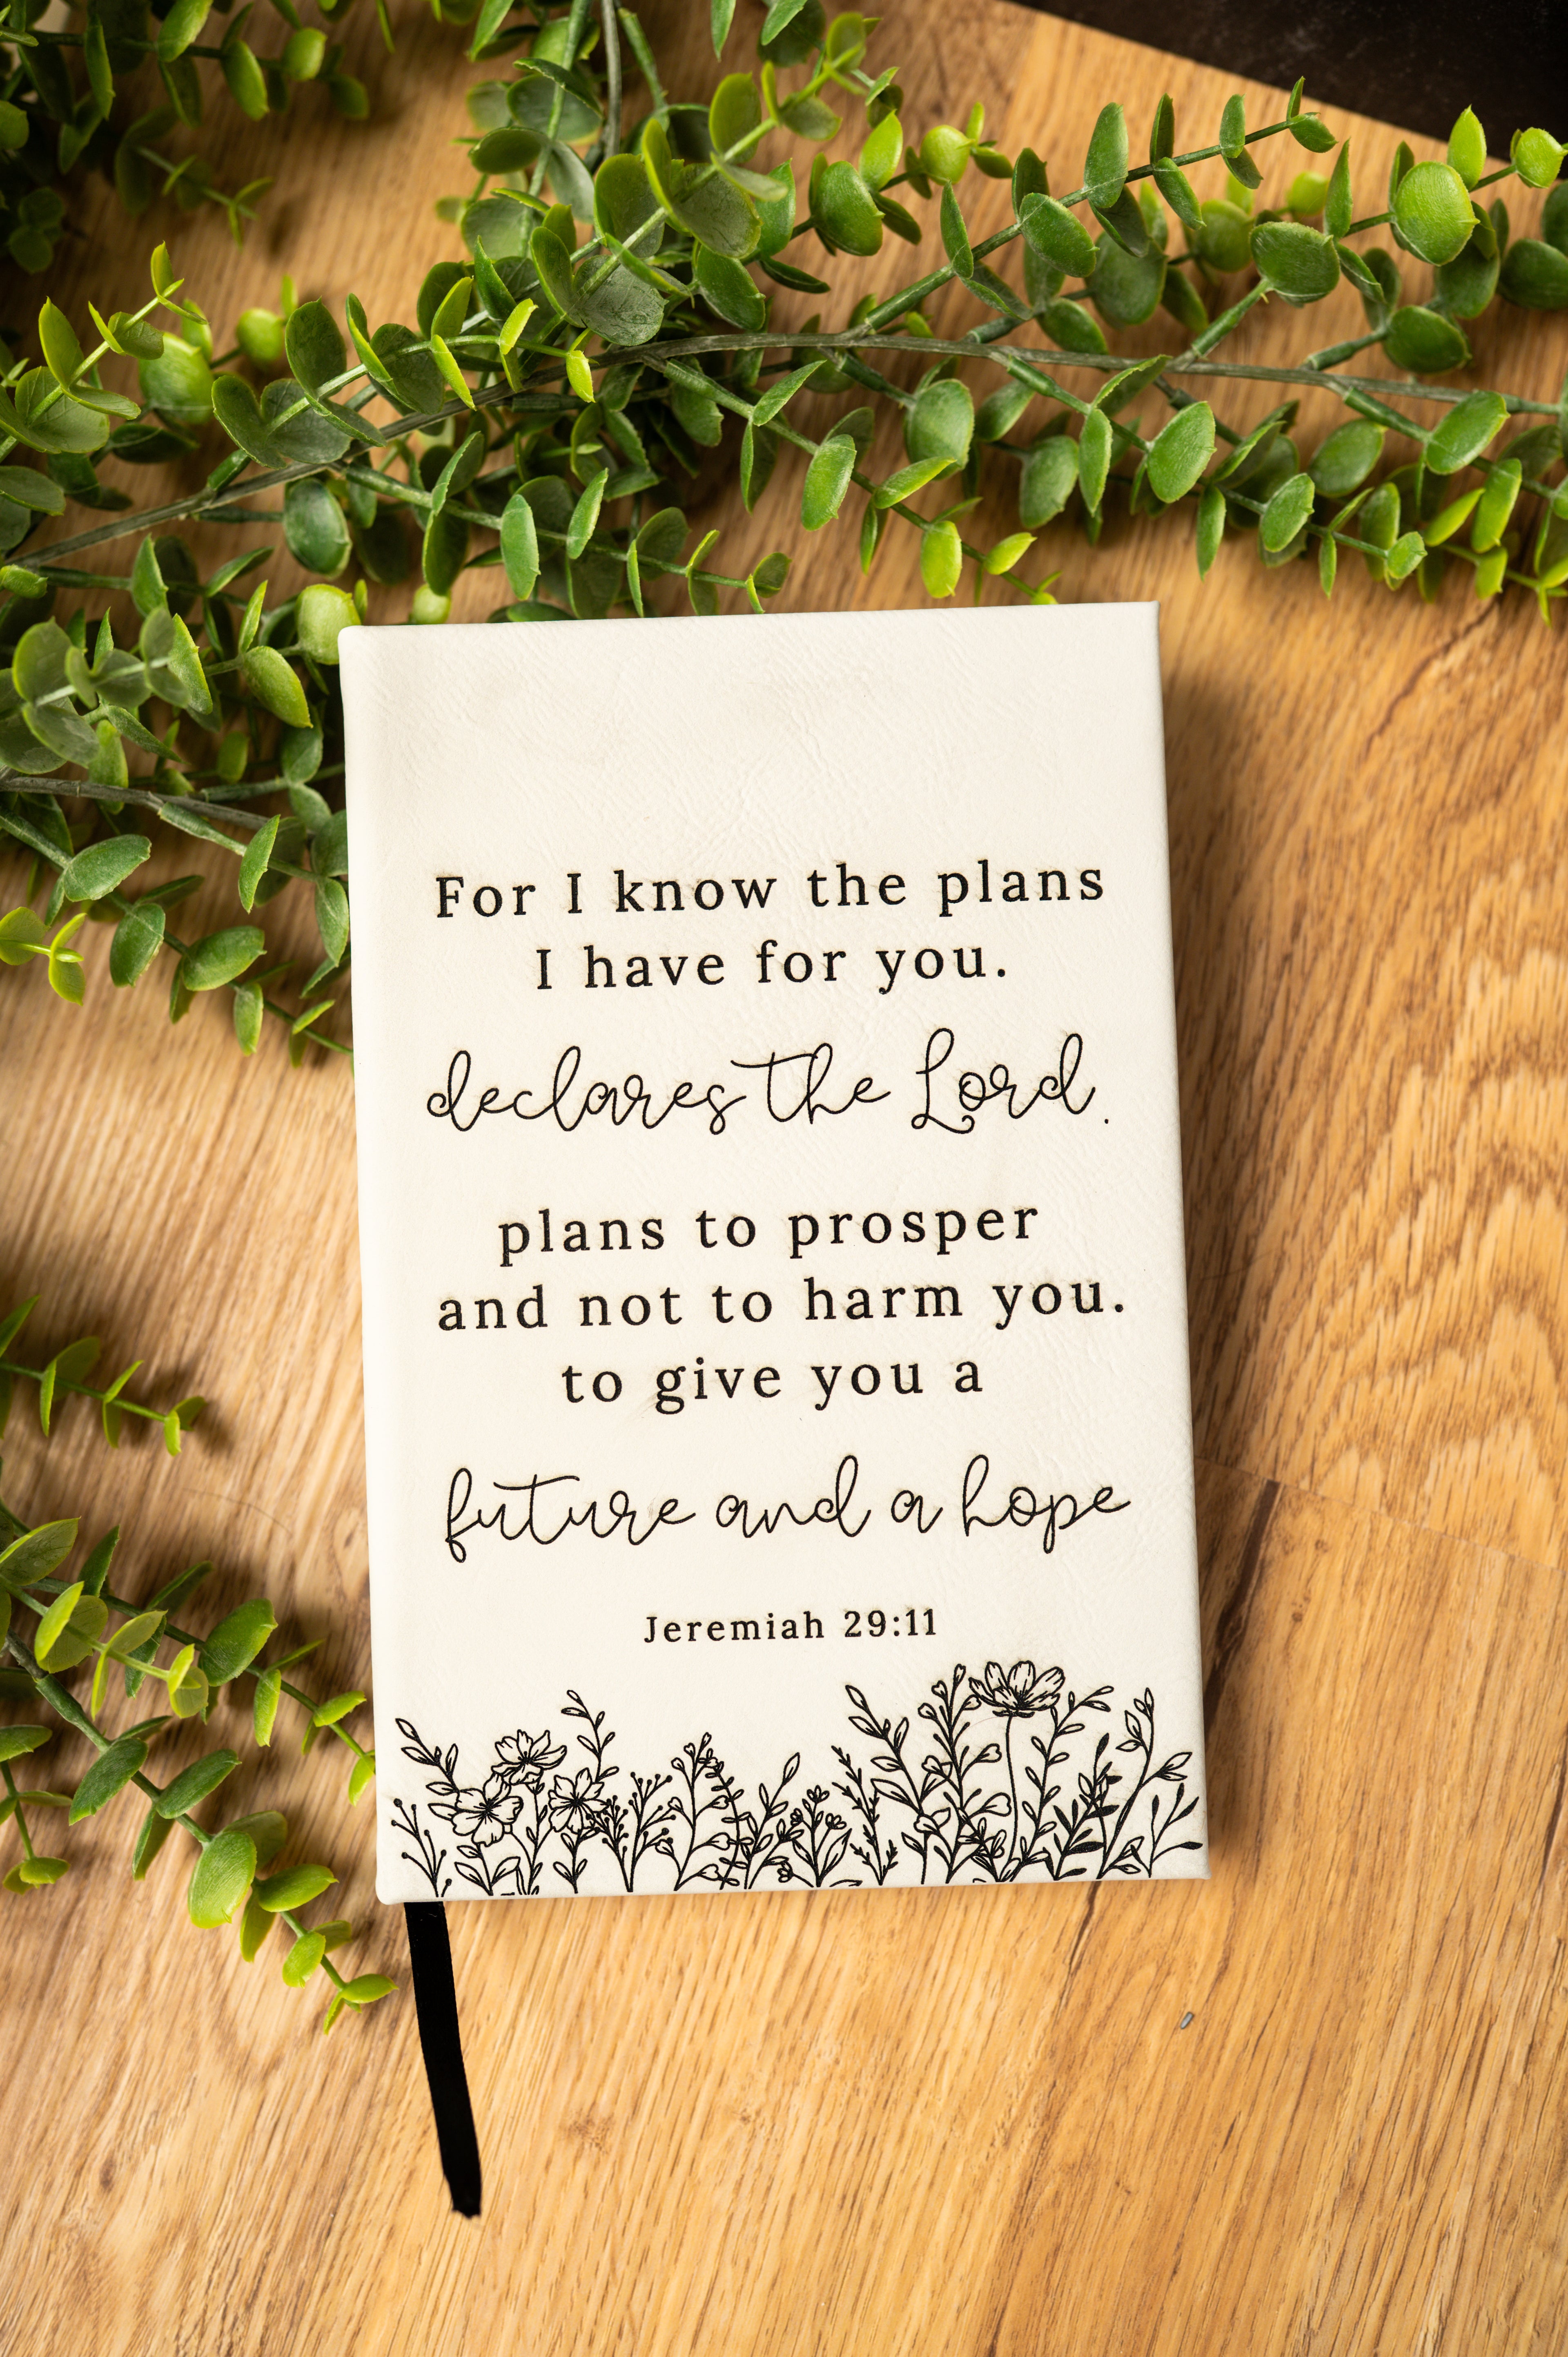 For I know the plans
I have for you.
declares the Lord.
plans to prosper
and not to harm you.
to give you a
future and a hope
Jeremiah 29:11